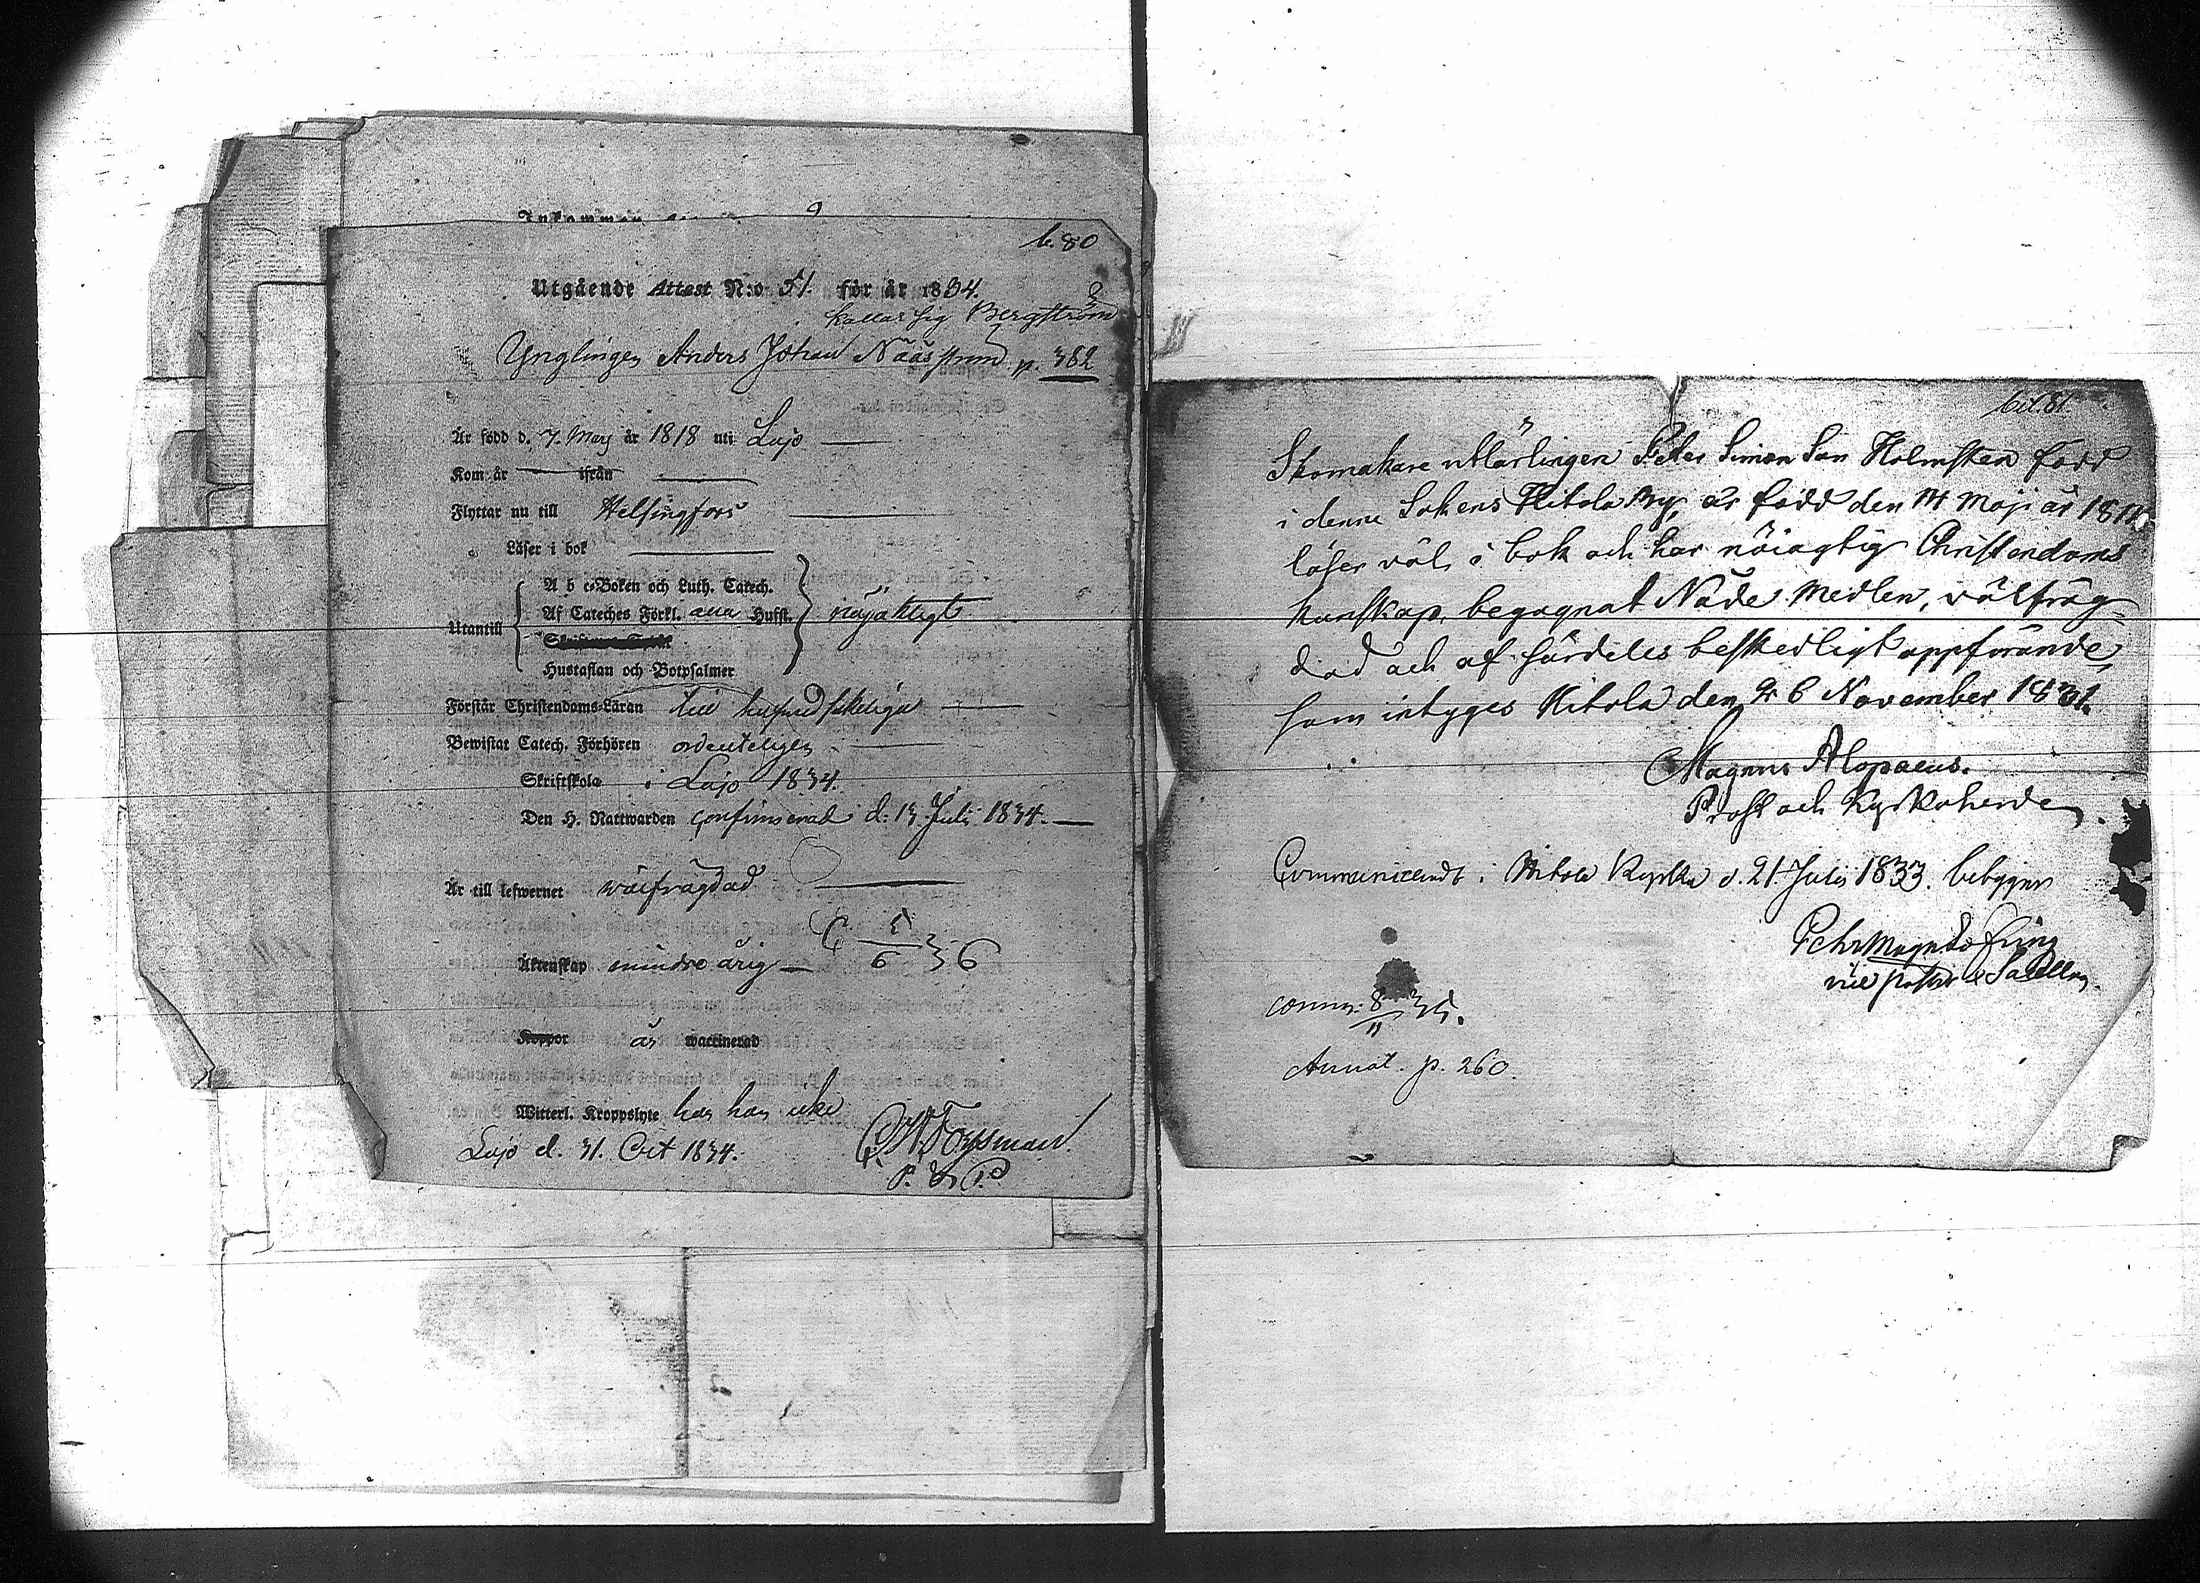 b. 80
Utgående Attest N:o 51. för år 1834.
kallar sig Bergström
Ynglingen Anders Johan Nääsström p. 382
Är född d. 7 Maj år 1818 uti Lojo
Kom år ifrån
Flyttar nu till Helsingfors
Läser i bok
Utantill
A b c-Boken och Luth. Catech.
Af Cateches Förkl. alla Husfl. nöjaktigt
Hustaflan och Botpsalmer
Förstår Christendoms-Läran till hufvudsakeliga
Bewistat Catech. Förhören ordenteligen
Skriftskola i Lojo 1834.
Den H. Nattwarden confirmerad d. 13 Juli 1834.
Är till lefwernet wälfrägdad
Äktenskap mindre årig
C 5/6 36
Koppor är waccinerad
Witterl. Kroppslyte har han icke
Lojo d. 31. Oct 1834.
Forsman.
P. &
bil. 81
Skomakare utlärlingen Peter Simon Son Holmsten född
i denne Sokens Hitola By, är född den 14 Maji år
läser väl i bok och har nöiagtig Christendoms
kunskap, begagnat Nåde Medlen, välfräg-
dad och af särdeles beskedligt uppförande,
som intyges Hitola den 26 November 1831.
Magnus Alopaeus.
Prost och Kyrkoherde
Communicerat i Hitola Kyrka d. 21 Julij 1833. betygar
Pehr Magn
vice pastor
comm. 8/11 35.
Annot. p. 260.